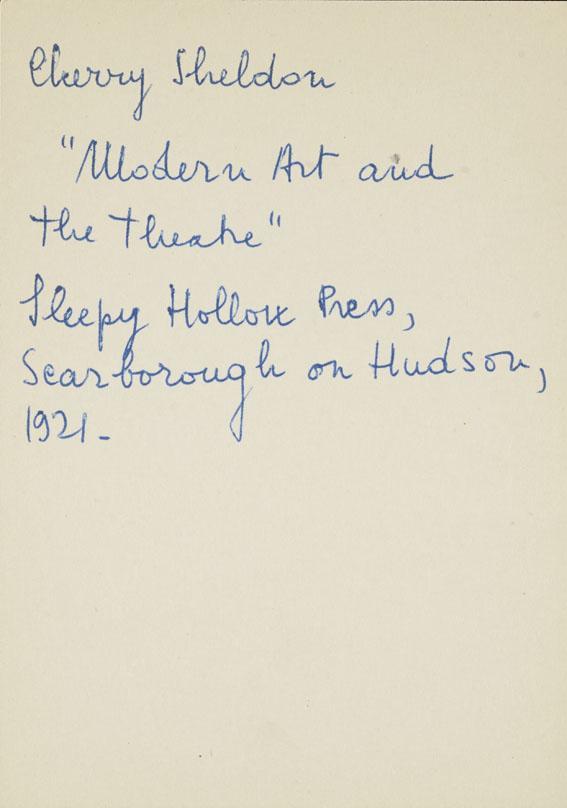 Cherry Sheldon
"Modern Art and
the theatre"
Sleepy Hollow Press,
Scarborough on Hudson,
1921-